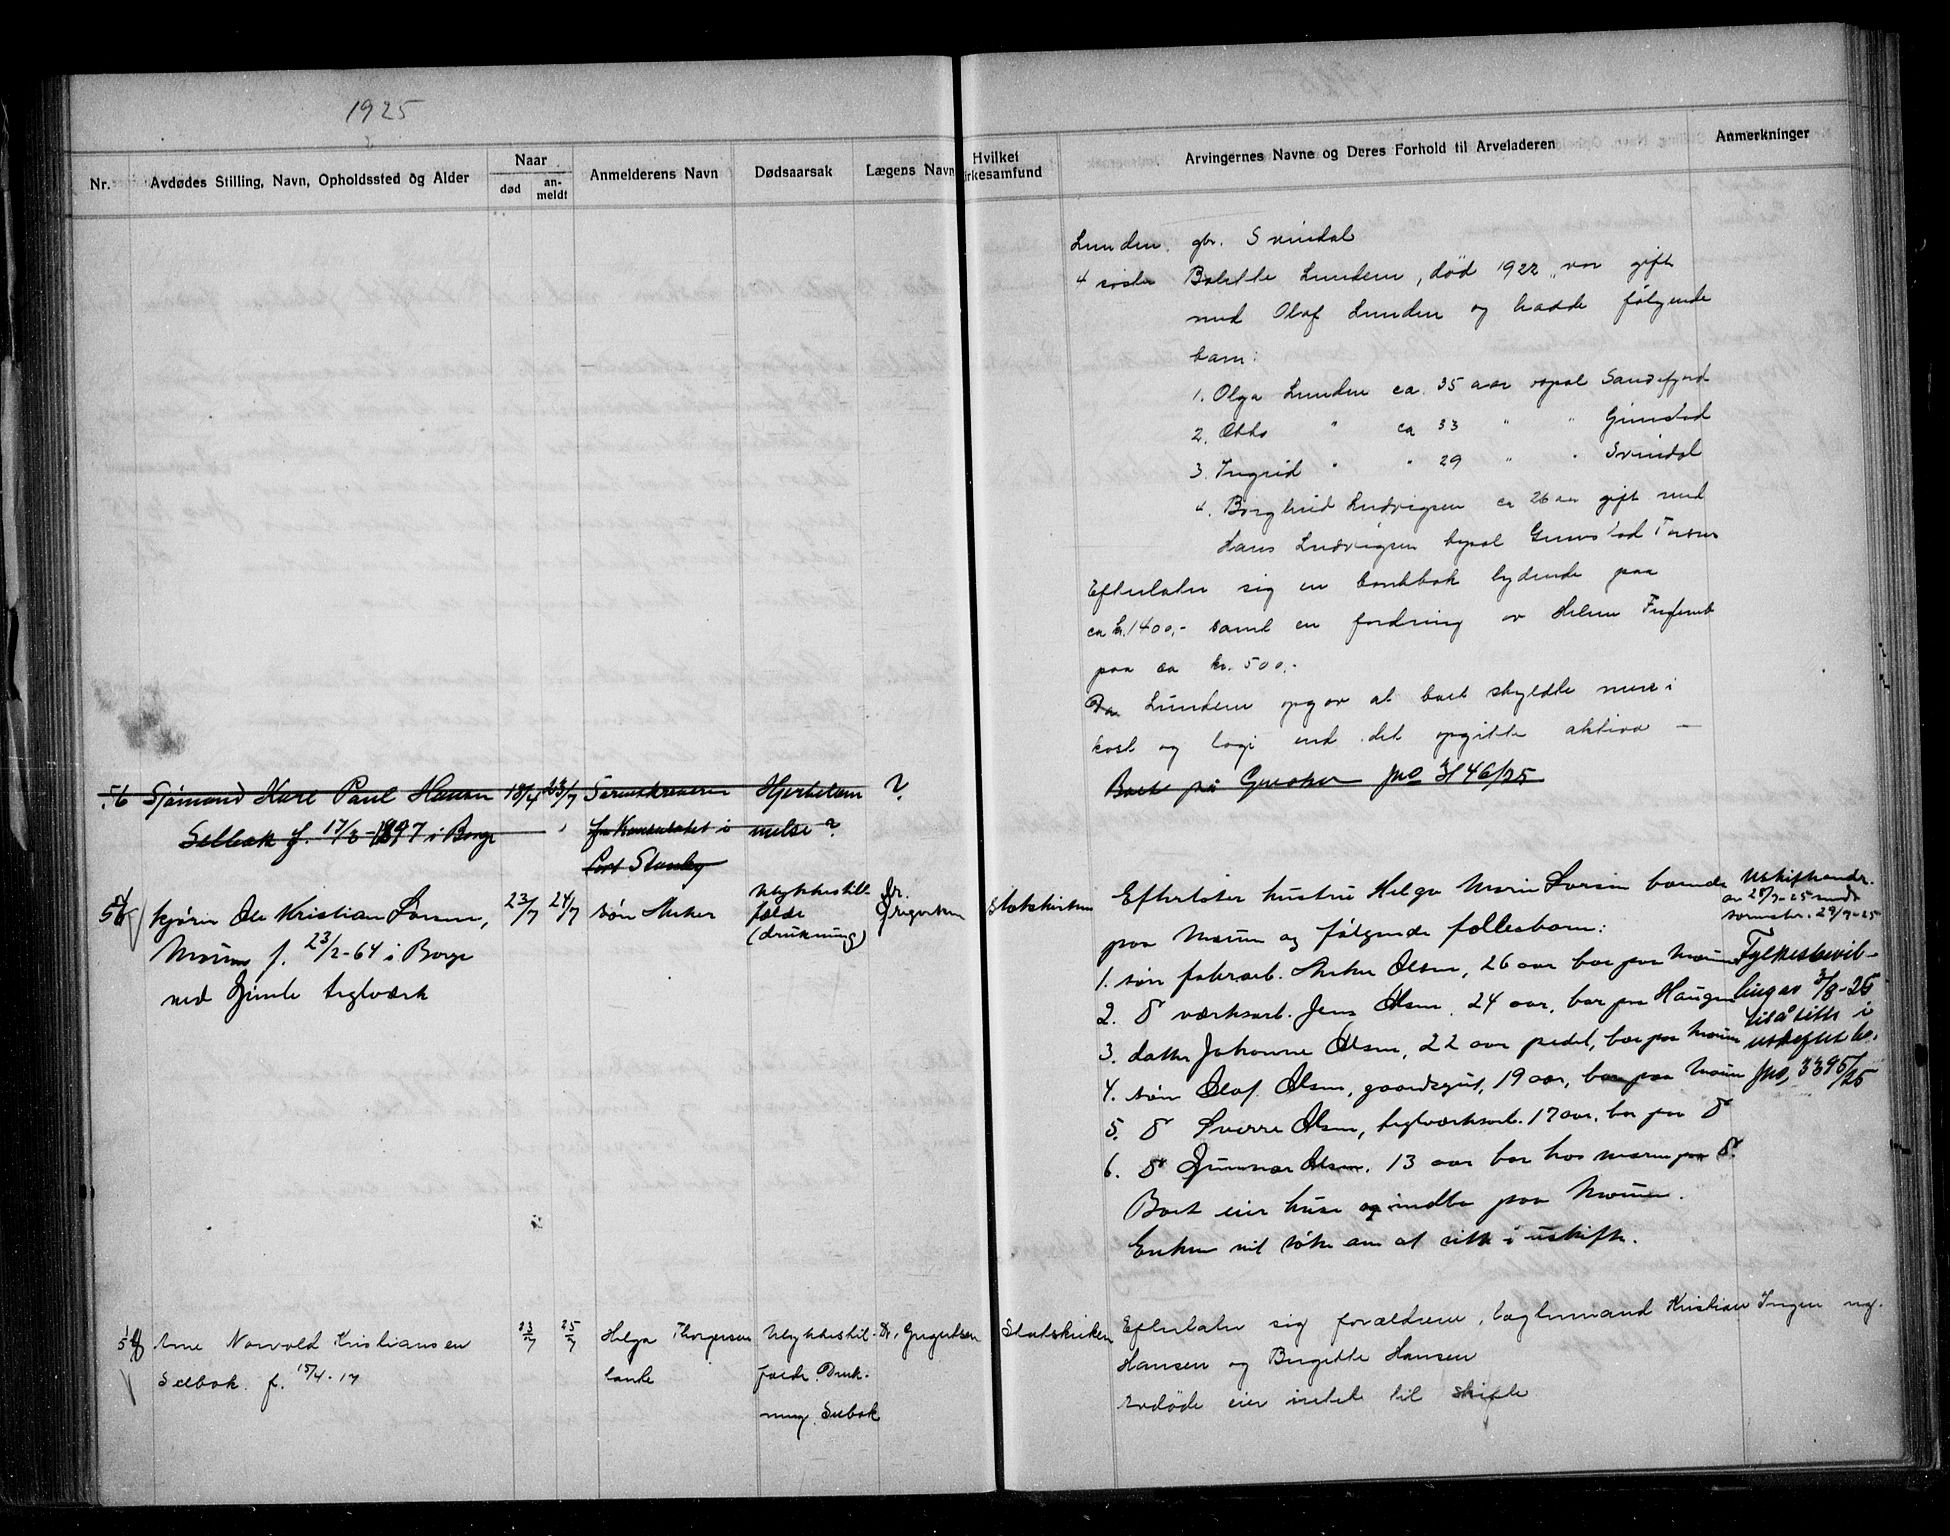 1925
Nr.
Avdødes Stilling, Navn, Opholdssted og Alder
Naar
død
an-
meldt
Anmelderens Navn
Dødsaarsak
Lægens Navn
Hvilket
irkesamfund
Arvingernes Navne og Deres Forhold til Arveladeren
Anmerkninger
Lunden. gbr. Svindal
4 søster Bolette Lunden, død 1922, var gift
med Olaf Lunden og hadde følgende
barn:
1. Olga Lunden ca. 35 aar Sandefjord
2. Otto " ca 33 " "
3. Ingrid " " 29 " " Svindal
4. Borghild Ludvigsen ca 26 aar gift med
Hans Ludvigsen
Efterlater sig en bankbok lydende paa
ca kr. 1400,- samt en fordring av
paa ca kr. 500.-
Lunden opgav at boet skyldte mere i
kost og logi end det opgitte aktiva —
Boet på 46/25
56 Sjømand Karl Paul Hansen 18/4 23/7 Hjertelam ?
Selbak f. 17/3-1897 i Borge fra Konsulatet i melse ?
Port Stanley
56 kjører Ole Kristian Larsen, 23/7 24/7 søn Anker Ulykkestil- Dr. Statskirken
Moum f. 23/2-64 i Borge fælde
ved Gimle teglværk (drukning)
Efterlater hustru Helga Marie Larsen boende
paa Moum og følgende fællesbarn:
1. søn fabr.arb. Anker Olsen, 26 aar bor paa Moum
2. d værksarb. Jens Olsen, 24 aar, bor paa Haugen
3. datter Johanne Olsen, 22 aar bor paa Moum
4. søn Olaf Olsen, gaardsgut, 19 aar, bor paa Moum
5. d Sverre Olsen, teglværksarb. 17 aar, bor paa d
6. d Gunnar Olsen, 13 aar bor hos moren paa d.
Boet eier huse og indbo paa Moum.
Enken vil søke om at sitte i uskifte.
Fylkesbevil-
ling av 3/8-25
til å sitte i
uskiftet bo.
3395/25
Arne Norvald Kristiansen 23/7 25/7 Helga Thorgersen Ulykkestil- Dr. Gregertsen Statskirken
Selbak. f. 15/4-17 tante fælde. Druk-
ning. Selbak
Efterlater sig forældrene, baglemand Kristian Ingv.
Hansen og Birgitte Hansen
Avdøde eier intet til skifte